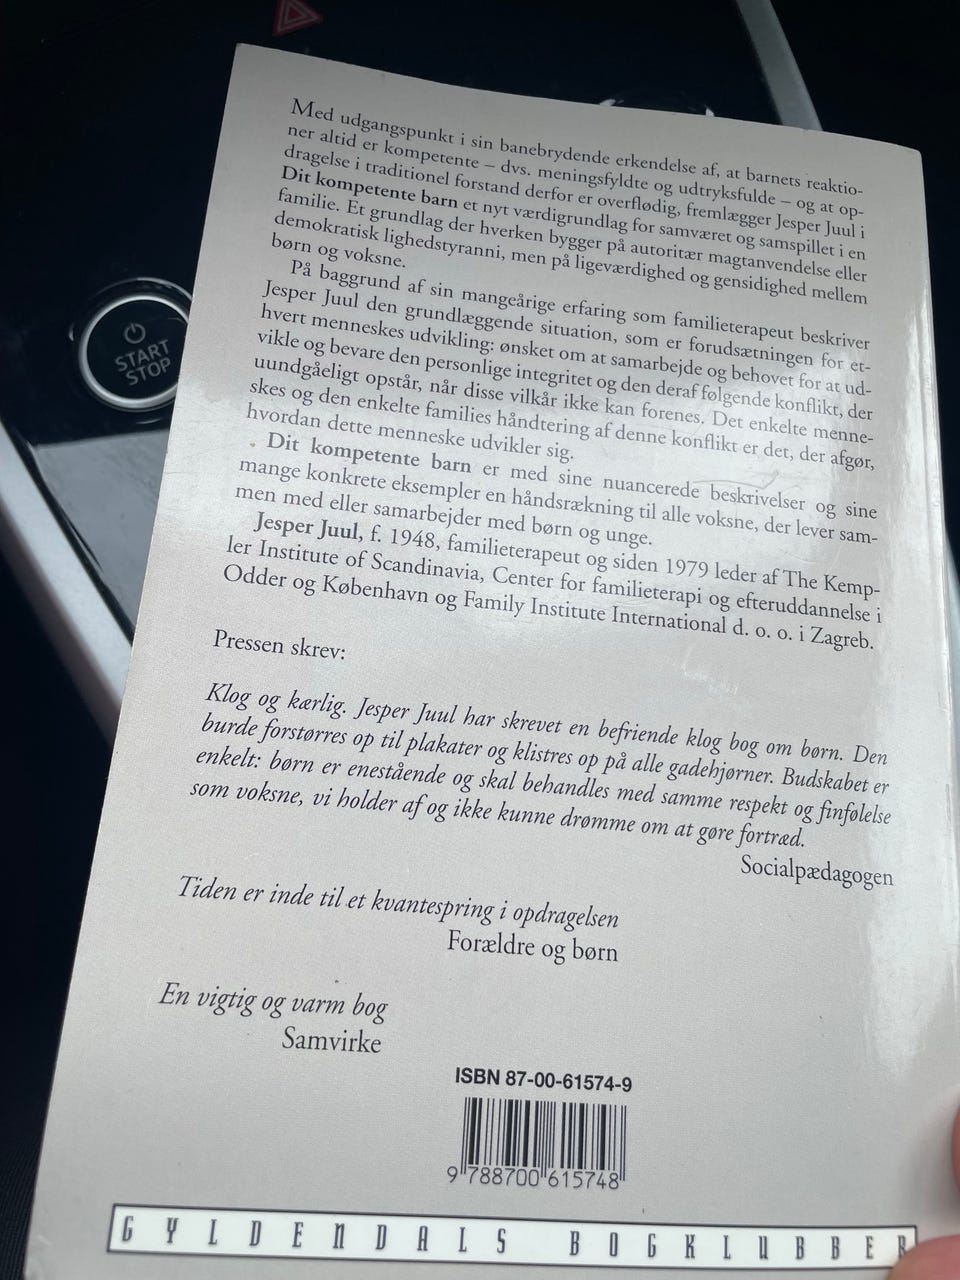 START
STOP
Med udgangspunkt i sin banebrydende erkendelse af, at barnets reaktio-
ner altid er kompetente – dvs. meningsfyldte og udtryksfulde – og at op-
dragelse i traditionel forstand derfor er overflødig, fremlægger Jesper Juul i
Dit kompetente barn et nyt værdigrundlag for samværet og samspillet i en
familie. Et grundlag der hverken bygger på autoritær magtanvendelse eller
demokratisk lighedstyranni, men på ligeværdighed og gensidighed mellem
børn og voksne.
På baggrund af sin mangeårige erfaring som familieterapeut beskriver
Jesper Juul den grundlæggende situation, som er forudsætningen for et-
hvert menneskes udvikling: ønsket om at samarbejde og behovet for at ud-
vikle og bevare den personlige integritet og den deraf følgende konflikt, der
uundgåeligt opstår, når disse vilkår ikke kan forenes. Det enkelte menne-
skes og den enkelte families håndtering af denne konflikt er det, der afgør,
hvordan dette menneske udvikler sig.
Dit kompetente barn er med sine nuancerede beskrivelser og sine
mange konkrete eksempler en håndsrækning til alle voksne, der lever sam-
men med eller samarbejder med børn og unge.
Jesper Juul, f. 1948, familieterapeut og siden 1979 leder af The Kemp-
ler Institute of Scandinavia, Center for familieterapi og efteruddannelse i
Odder og København og Family Institute International d. o. o. i Zagreb.
Pressen skrev:
Klog og kærlig. Jesper Juul har skrevet en befriende klog bog om børn. Den
burde forstørres op til plakater og klistres op på alle gadehjørner. Budskabet er
enkelt: børn er enestående og skal behandles med samme respekt og finfølelse
som voksne, vi holder af og ikke kunne drømme om at gøre fortræd.
Socialpædagogen
Tiden er inde til et kvantespring i opdragelsen
Forældre og børn
En vigtig og varm bog
Samvirke
ISBN 87-00-61574-9
9 788700 615748
GYLDENDALS BOGKLUBBER